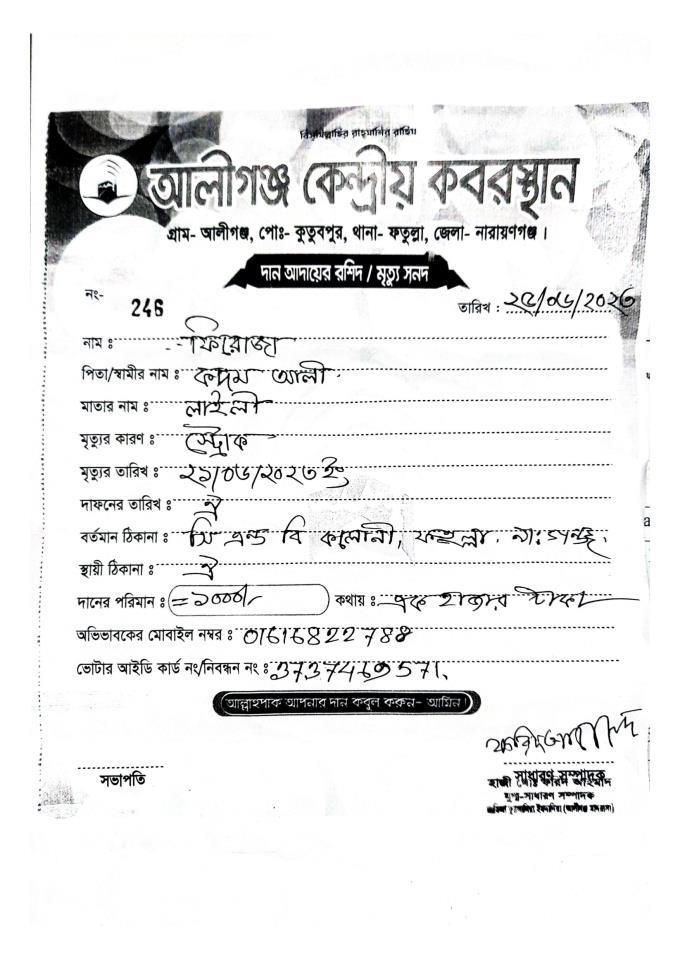 বিসমিল্লাহির রাহমানির রাহিম
আলীগঞ্জ কেন্দ্রীয় কবরস্থান
গ্রাম- আলীগঞ্জ, পোঃ- কুতুবপুর, থানা- ফতুল্লা, জেলা- নারায়ণগঞ্জ।
দান আদায়ের রশিদ / মৃত্যু সনদ
নং- 246 তারিখ : ২৫/০৬/২০২৩
নাম ঃ ফিরোজা
পিতা/স্বামীর নাম ঃ কদম আলী
মাতার নাম ঃ লাইলী
মৃত্যুর কারণ ঃ স্ট্রোক
মৃত্যুর তারিখ ঃ ২১/০৬/২০২৩ ইং
দাফনের তারিখ ঃ ঐ
বর্তমান ঠিকানা ঃ সি এন্ড বি কলোনী, ফতুল্লা. না:গঞ্জ.
স্থায়ী ঠিকানা ঃ ঐ
দানের পরিমান ঃ =১০০০/- কথায় ঃ এক হাজার টাকা
অভিভাবকের মোবাইল নম্বর ঃ 01616822788
ভোটার আইডি কার্ড নং/নিবন্ধন নং ঃ 3737469571.
আল্লাহপাক আপনার দান কবুল করুন- আমিন।
সভাপতি
সাধারণ সম্পাদক
হাজী মোঃ ফরিদ আহমাদ
যুগ্ম-সাধারণ সম্পাদক